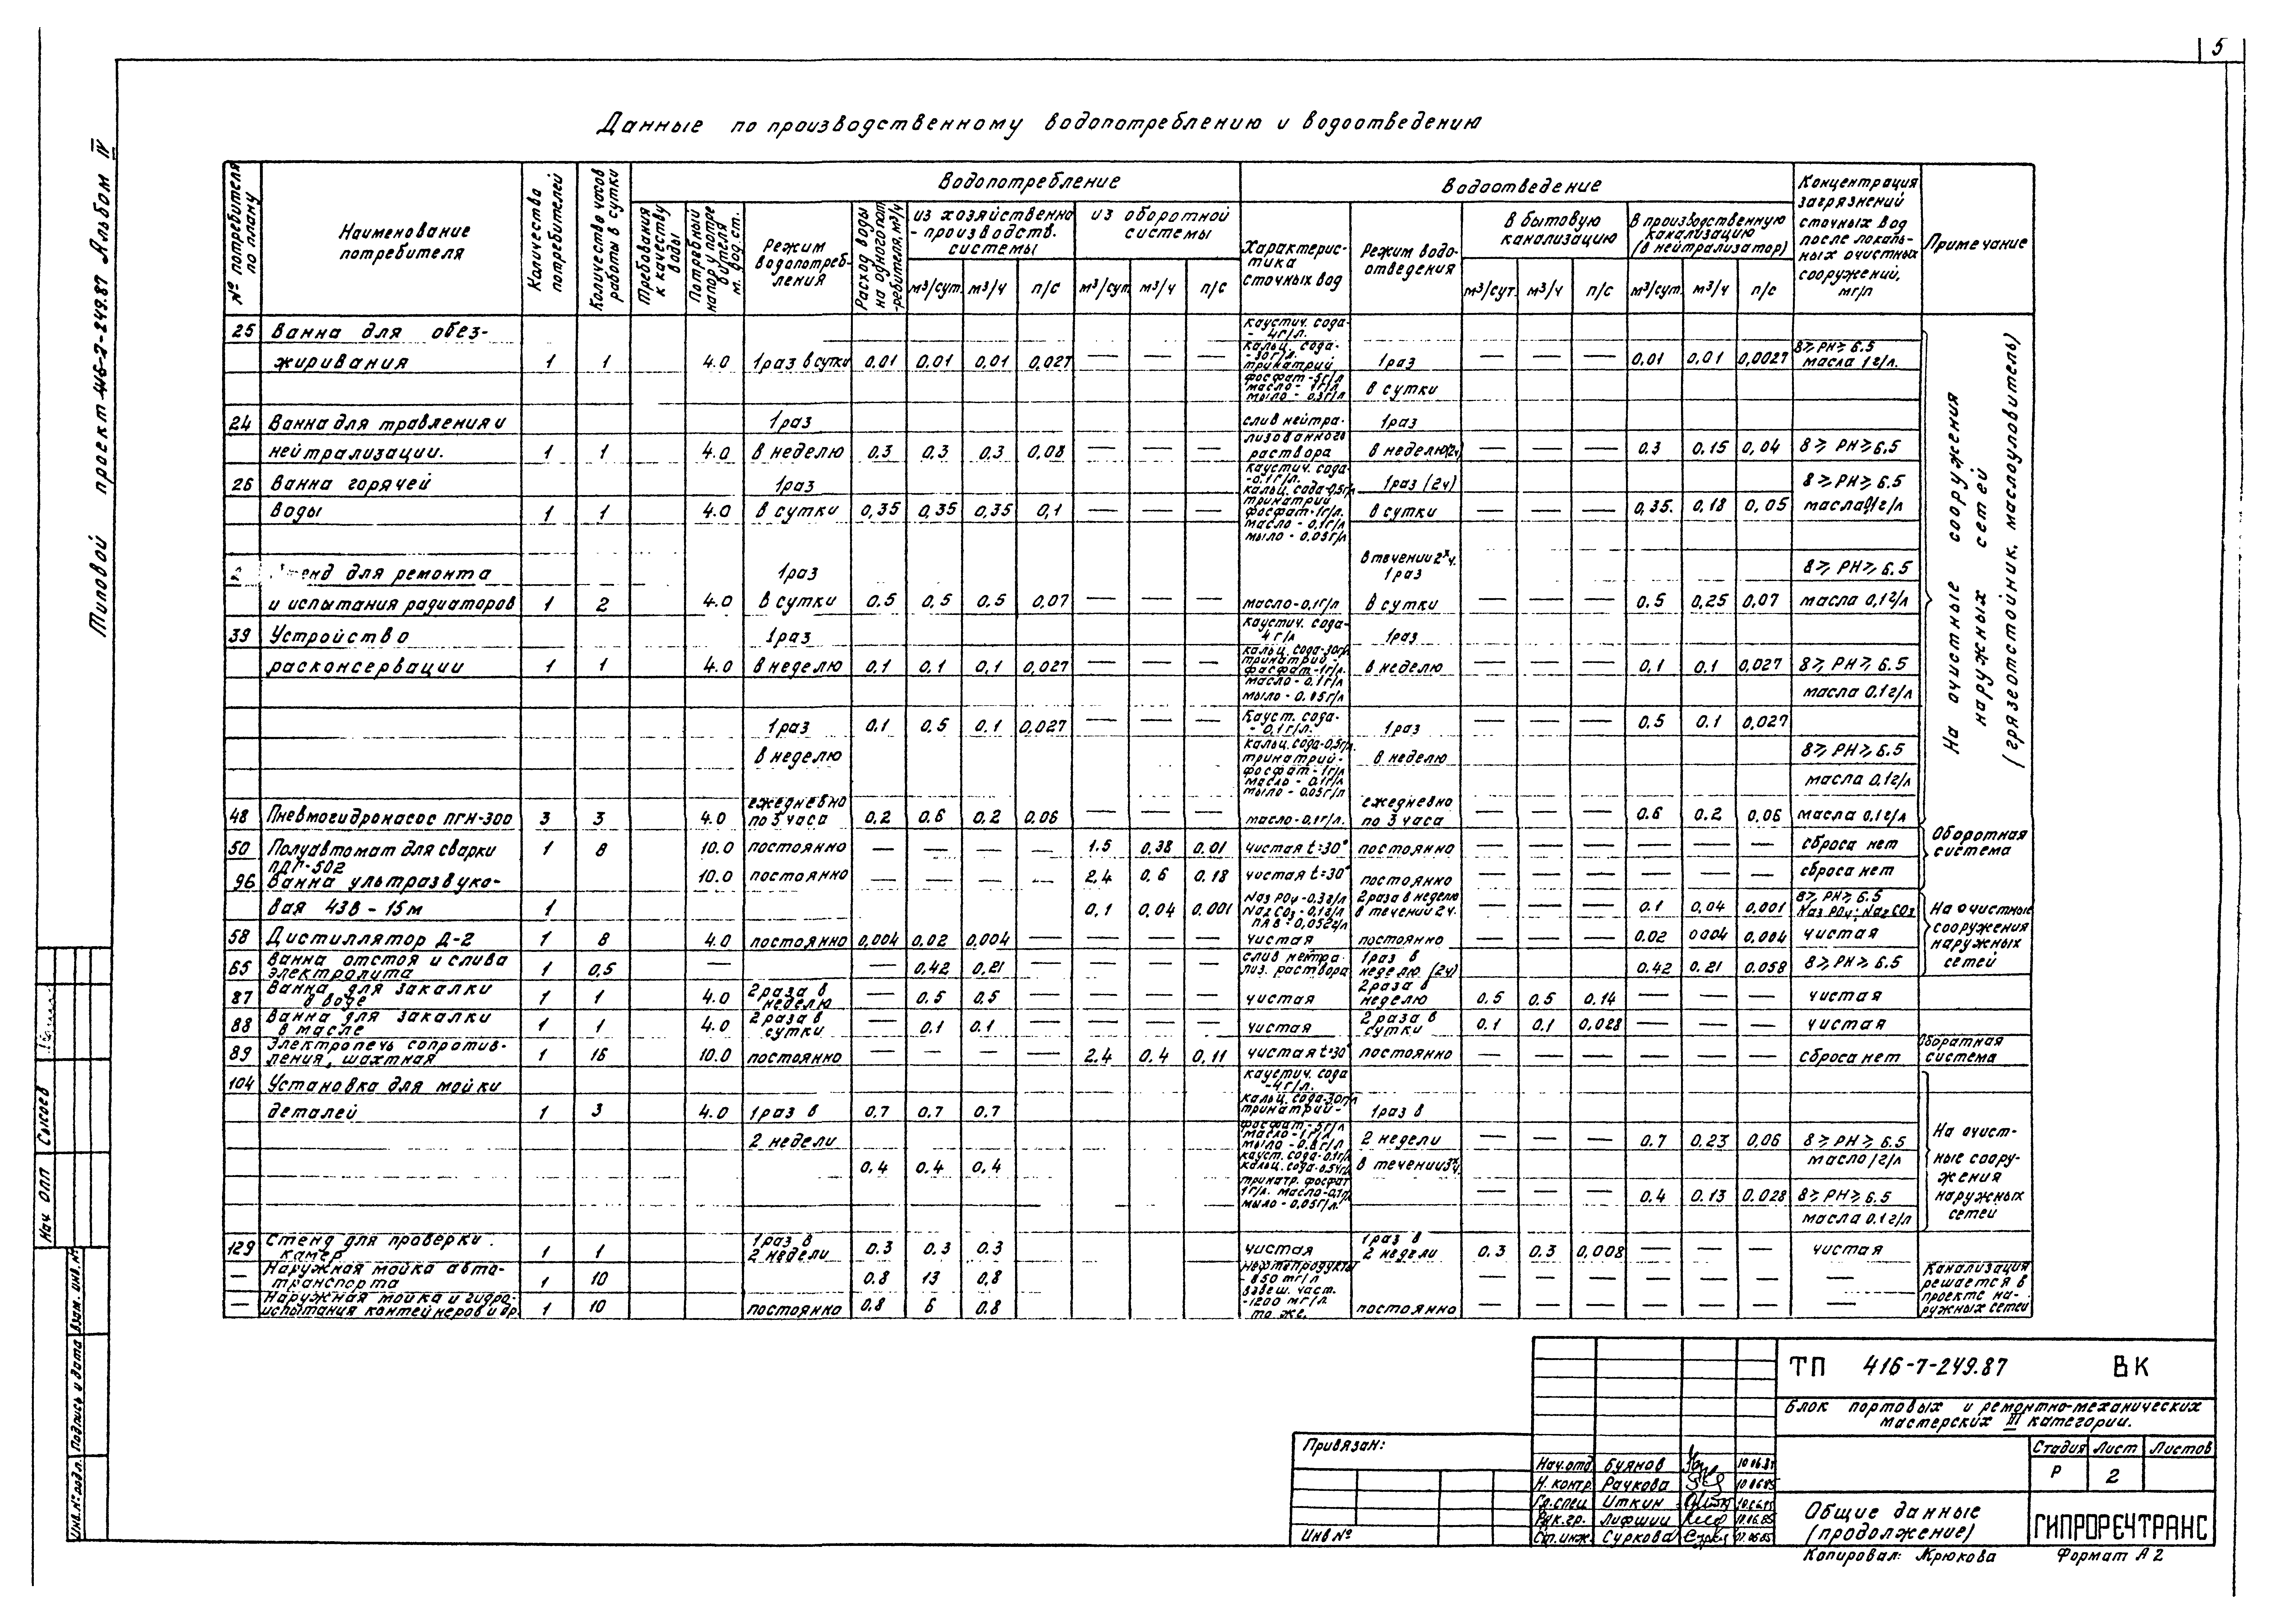 5
Типовой проект 416-7-249.87 Альбом IV
Данные по производственному водопотреблению и водоотведению
№ потребителя по плану
Наименование потребителя
Количество потребителей
Количество часов работы в сутки
Водопотребление
Требования к качеству воды
Потребный напор у потребителя м. вод. ст.
Режим водопотребления
Расход воды на одного потребителя, м3/ч
из хозяйственно-производств. системы
из оборотной системы
м3/сут. м3/ч л/с м3/сут м3/ч л/с
Водоотведение
Характеристика сточных вод
Режим водоотведения
в бытовую канализацию
в производственную канализацию (в нейтрализатор)
м3/сут. м3/ч л/с м3/сут. м3/ч л/с
Концентрация загрязнений сточных вод после локальных очистных сооружений, мг/л
Примечание
25 Ванна для обез-
жиривания 1 1 4.0 1раз в сутки 0,01 0,01 0,01 0,027 — — — каустич. сода- - 4г/л. кальц. сода- -30г/л. тринатрий фосфат-5г/л масло - 1г/л мыло - 0,3г/л 1раз в сутки — — — 0,01 0,01 0,0027 8≥ РН≥ 6.5 масла 1г/л.
24 Ванна для травления и
нейтрализации. 1 1 4.0 1раз в неделю 0.3 0.3 0.3 0,08 — — — слив нейтрализованного раствора 1раз в неделю(2ч) — — — 0.3 0,15 0,04 8≥ РН≥6,5
26 Ванна горячей
воды 1 1 4.0 1раз в сутки 0,35 0,35 0,35 0,1 — — — каустич. сода- -0.1г/л. кальц. сода-0,5г/л тринатрий фосфат-1г/л. масло - 0,1г/л мыло - 0,05г/л 1раз (2ч) в сутки — — — 0,35. 0,18 0,05 8≥РН≥6.5 масла 0,1г/л
для ремонта
и испытания радиаторов 1 2 4.0 1раз в сутки 0.5 0,5 0.5 0,07 — — — масло-0,1г/л в течении 2х ч. 1раз в сутки — — — 0.5 0,25 0,07 8≥ РН≥ 6.5 масла 0,1г/л
39 Устройство
расконсервации 1 1 4.0 1раз в неделю 0.1 0,1 0,1 0,027 — — — каустич. сода- 4 г/л кальц. сода-30гл. тринатрий фосфат-1г/л. масло - 0,1г/л мыло - 0,05г/л 1раз в неделю — — — 0,1 0.1 0,027 8≥ РН≥ 6.5 масла 0.1г/л
1раз в неделю 0,1 0,5 0,1 0,027 — — — Кауст. сода- - 0,1г/л. кальц. сода-0,5г/л. тринатрий- фосфат - 1г/л масло - 0,1г/л мыло - 0.05г/л 1раз в неделю — — — 0.5 0.1 0,027 8≥ РН≥ 6.5 масла 0,1г/л
48 Пневмогидронасос ПГН-300 3 3 4.0 ежедневно по 3 часа 0,2 0.6 0,2 0,06 — — — масло-0,1г/л. ежедневно по 3 часа — — — 0.6 0.2 0,06 масла 0,1г/л
50 Полуавтомат для сварки ПДП-502 1 8 10.0 постоянно — — — — 1.5 0,38 0.01 чистая t=30° постоянно — — — — — — сброса нет
96 Ванна ультразвуко- 10.0 постоянно — — — — 2,4 0,6 0.18 чистая t=30° постоянно — — — — — — сброса нет
вая 43В - 15м 1 0,1 0,04 0.001 Na3 PO4-0.3г/л Na2 CO3-0,1г/л ПАВ-0,052г/л 2раза в неделю в течений 2ч. — — — 0.1 0,04 0,001 8≥ РН≥ 6.5 Na3 PO4; Na2 CO3
58 Дистиллятор Д-2 1 8 4.0 постоянно 0,004 0.02 0,004 — — — — чистая постоянно — — — 0.02 0004 0,004 чистая
65 Ванна отстоя и слива электролита 1 0,5 — — — 0,42 0,21 слив нейтрализ. раствора 1раз в неделю (2ч) 0.42 0.21 0.058 8≥ РН≥ 6.5
87 Ванна для закалки в воде 1 1 4.0 2раза в неделю — 0.5 0,5 — — — — чистая 2раза в неделю 0.5 0.5 0.14 — — — чистая
88 Ванна для закалки в масле 1 1 4.0 2 раза в сутки — 0.1 0.1 — — — чистая 2 раза в сутки 0.1 0.1 0,028 — — — чистая
89 Электропечь сопротивления, шахтная 1 16 10.0 постоянно — — — — 2.4 0.4 0,11 чистая t=30° постоянно — — — — — — сброса нет
104 Установка для мойки
деталей 1 3 4.0 1раз в 2 недели 0,7 0.7 0.7 каустич. сода -4г/л. кальц. сода-30г/л тринатрий- фосфат-5г/л масло-1г/л мыло - 0.8г/л 1раз в 2 недели в течении 3х ч. — — — 0.7 0.23 0,06 8≥ РН≥ 6.5 масло 1г/л
0,4 0.4 0,4 кауст. сода-0,1г/л кальц. сода-0.5г/л тринатр. фосфат 1г/л. масло-0,1г/л мыло - 0,05г/л. — — — 0.4 0.13 0.028 8≥ РН≥ 6.5 масла 0.1г/л
129 Стенд для проверки камер 1 1 1раз в 2 недели 0.3 0.3 0.3 чистая 1раз в 2 недели 0,3 0.3 0,008 — — — чистая
— Наружная мойка автотранспорта 1 10 0.8 13 0,8 нефтепродукты - 850 мг/л взвеш. част. -1200 мг/л. — — — — — — —
— Наружная мойка и гидроиспытания контейнеров и др. 1 10 постоянно 0,8 6 0.8 то же. постоянно — — — — — — —
На очистные сооружения наружных сетей (грязеотстойник, маслоуловитель)
Оборотная система
На очистные сооружения наружных сетей
Оборатная система
На очистные сооружения наружных сетей
Канализация решается в проекте наружных сетей
Нач ОПП Сысоев
Инв.№ подл. Подпись и дата Взам. инв. №
Привязан:
Инв №
Нач.отд. Буянов
Н. контр. Рачкова
Гл.спец. Иткин
Рук.гр. Лифшиц
Ст.инж. Суркова
ТП 416-7-249.87 ВК
Блок портовых и ремонтно-механических
мастерских III категории.
Стадия Лист Листов
Р 2
Общие данные
(продолжение)
ГИПРОРЕЧТРАНС
Копировал: Крюкова Формат А2